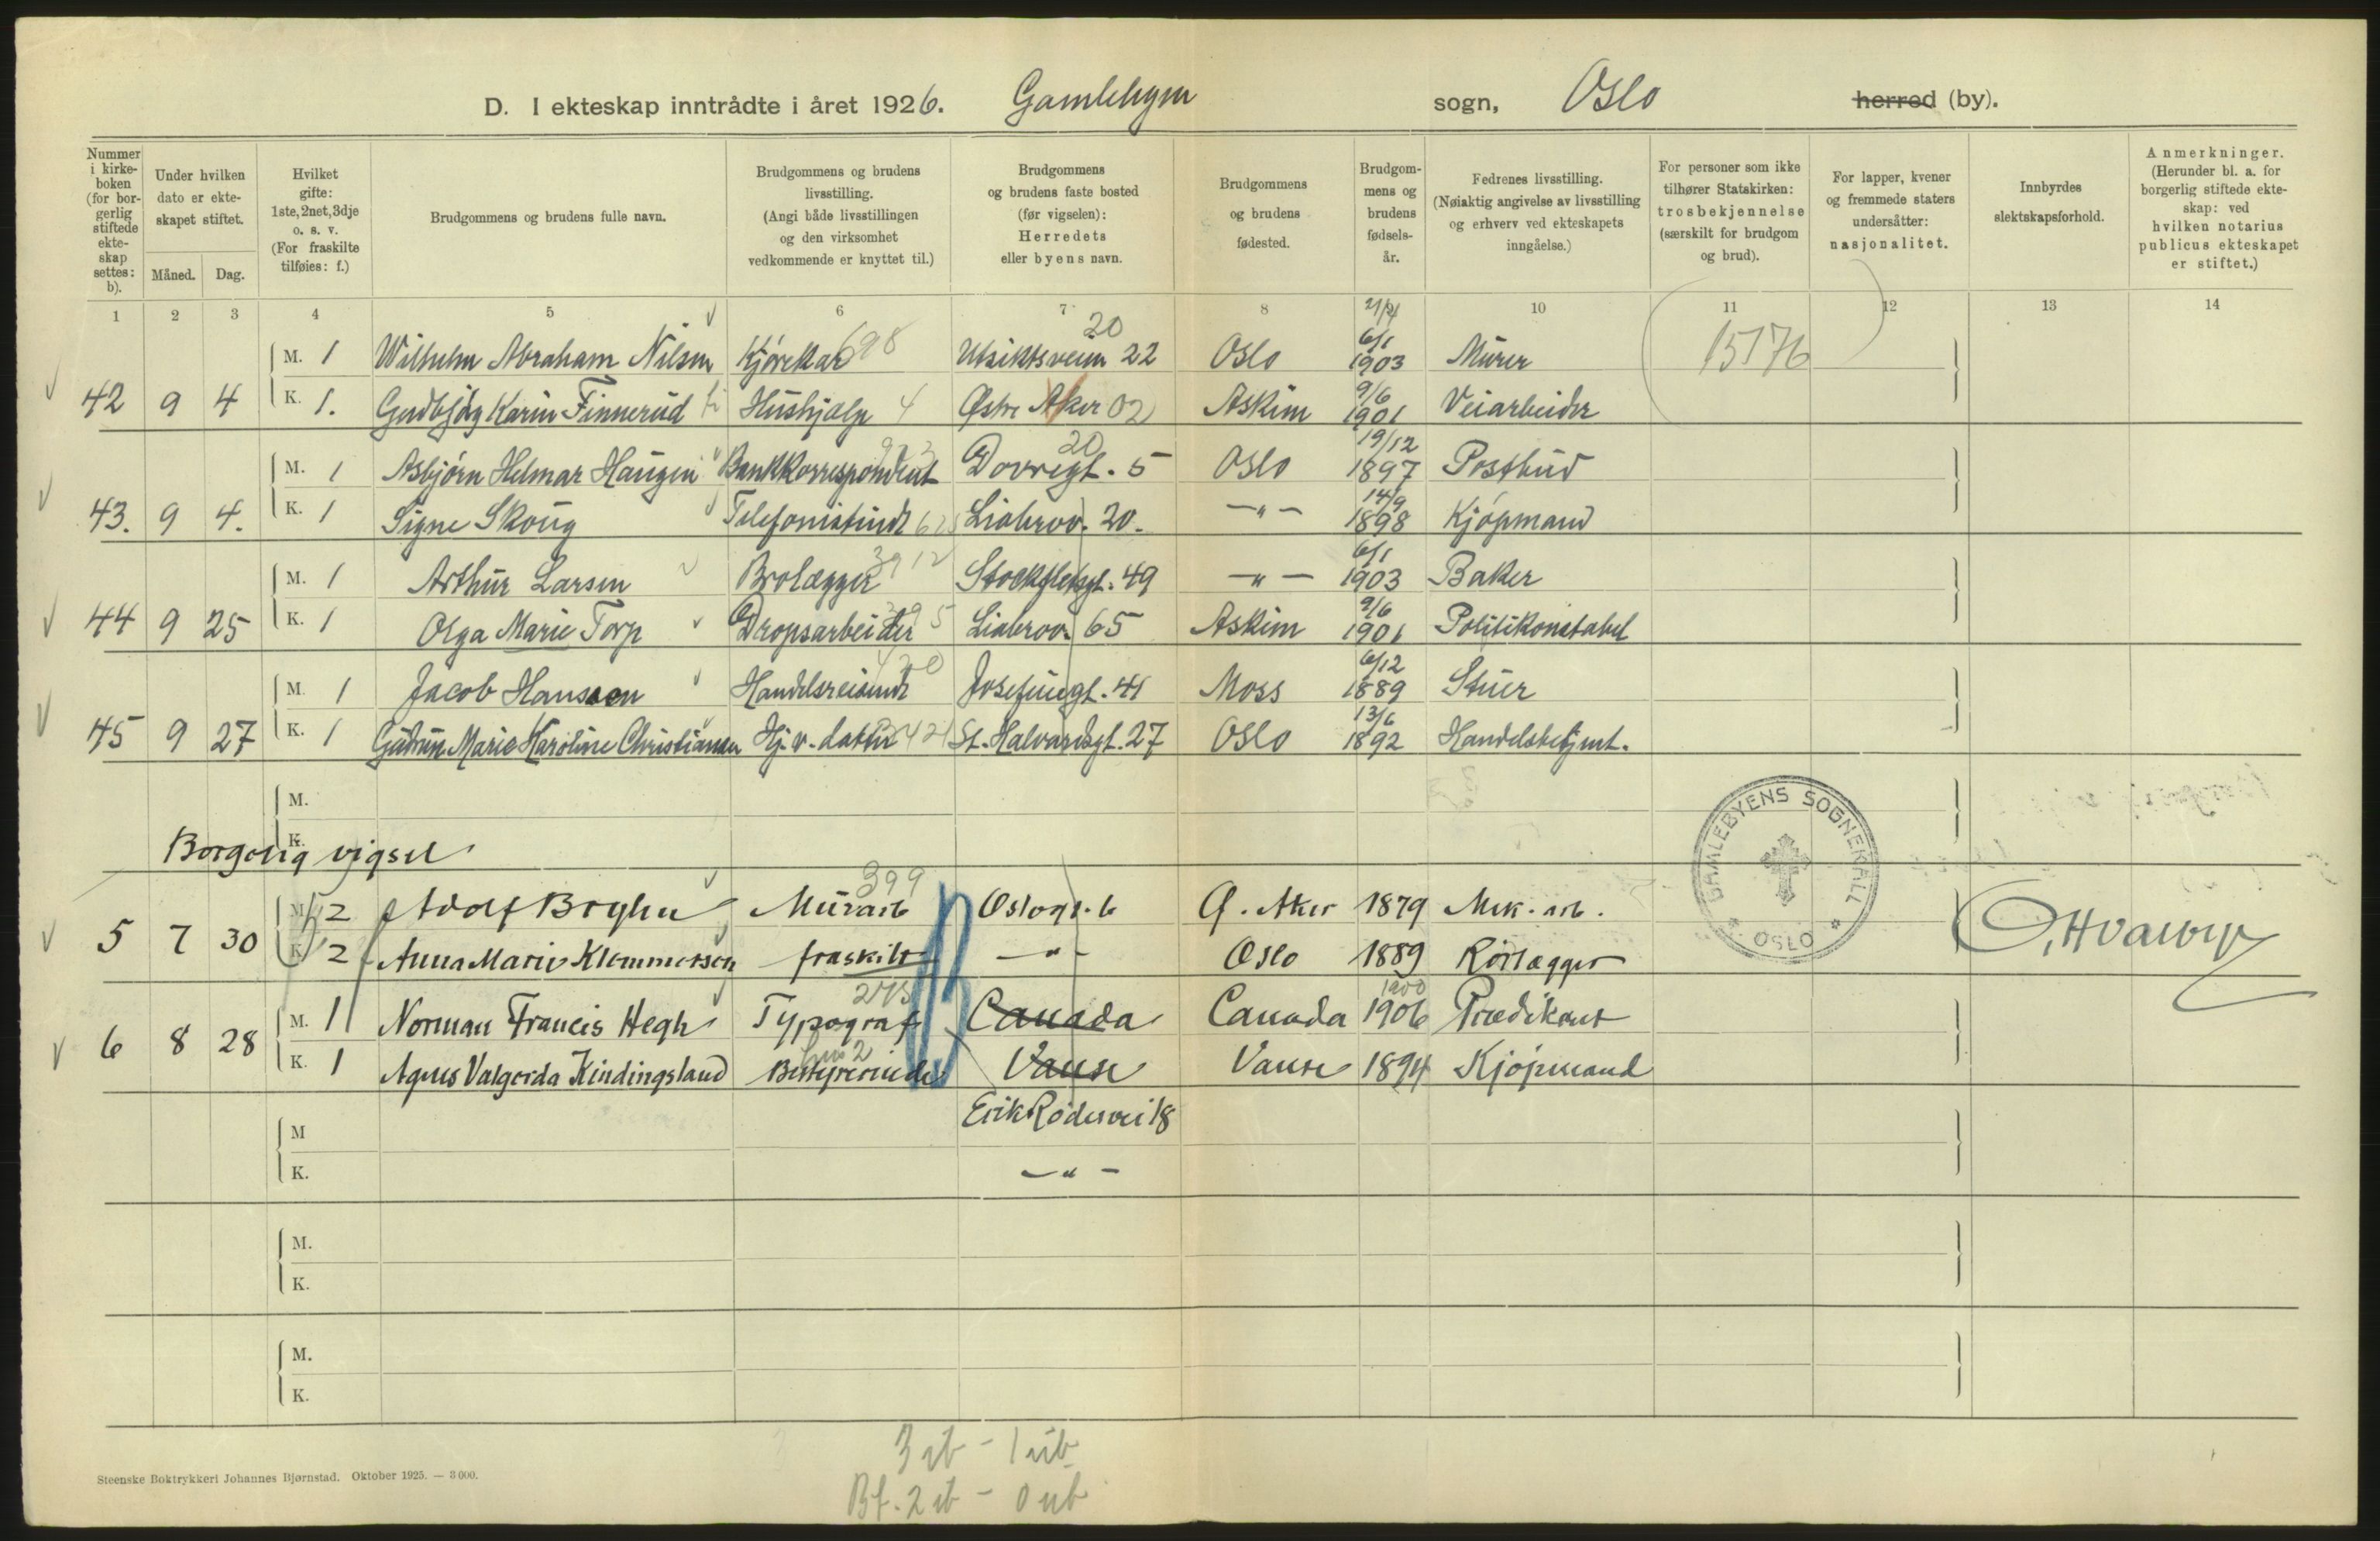 D. I ekteskap inntrådte i året 1926. Gamlebyen sogn, Oslo herred (by).
Nummer i kirkeboken (for borgerlig stiftede ekteskap settes: b).
Under hvilken dato er ekteskapet stiftet.
Måned. Dag.
Hvilket gifte: 1ste, 2net, 3dje o. s. v. (For fraskilte tilføies: f.)
Brudgommens og brudens fulle navn.
Brudgommens og brudens livsstilling. (Angi både livsstillingen og den virksomhet vedkommende er knyttet til.)
Brudgommens og brudens faste bosted (før vigselen): Herredets eller byens navn.
Brudgommens og brudens fødested.
Brudgommens og brudens fødselsår.
Fedrenes livsstilling. (Nøiaktig angivelse av livsstilling og erhverv ved ekteskapets inngåelse.)
For personer som ikke tilhører Statskirken: trosbekjennelse (særskilt for brudgom og brud).
For lapper, kvener og fremmede staters undersåtter: nasjonalitet.
Innbyrdes slektskapsforhold.
Anmerkninger. (Herunder bl. a. for borgerlig stiftede ekteskap: ved hvilken notarius publicus ekteskapet er stiftet.)
1 2 3 4 5 6 7 8 10 11 12 13 14
M. 1 Wilhelm Abraham Nilsen Kjørekar 698 Utsiktsveien 22 20 Oslo 6/1 1903 Murer 15176
42 9 4 K. 1. Gudbjørg Karin Finnerud Hushjælp 4 Østre Aker 02 Askim 9/6 1901 Veiarbeider
M. 1 Asbjørn Helmar Haugen Bankkorrespondent Dovregt. 5 20 Oslo 19/12 1897 Postbud
43. 9 4. K. 1 Signe Skoug Telefonistinde Liabrov. 20. -"- 14/9 1898 Kjøpmand
M. 1 Arthur Larsen Brolægger 3912 Stockfletsgt. 49 -"- 6/1 1903 Baker
44 9 25 K. 1 Olga Marie Torp Dropsarbeider Liabrov. 65 Askim 9/6 1901 Politikonstabel
M. 1 Jacob Hanssen Handelsreisende Josefinegt. 41 Moss 6/12 1889 Stuer
45 9 27 K. 1 Gudrun Marie Karoline Christiansen Hj. v. datter St. Halvardsgt. 27 Oslo 13/6 1892 Handelsbetjent.
M.
K.
Borgerlig vigsel
M. 2 Adolf Boghn Murarb 399 Oslogt. 6 Ø. Aker 1879 Mek. arb.
5 7 30 K. 2 Anna Marie Klemmetsen fraskilt -"- Oslo 1889 Rørlægger
M. 1 Norman Francis Hegh Typograf Canada Canada 1906 1900 Prædikant
6 8 28 K. 1 Agnes Valgerda Kindingsland Bestyrerinde Vanse Vanse 1894 Kjøpmand
M Erik Rødesvei 18
K. -"-
M.
K.
M.
K.
GAMLEBYENS SOGNEKALL * OSLO *
3 ib - 1 ub
Bf. 2 ib - 0 ub
Steenske Boktrykkeri Johannes Bjørnstad. Oktober 1925. — 3 000.